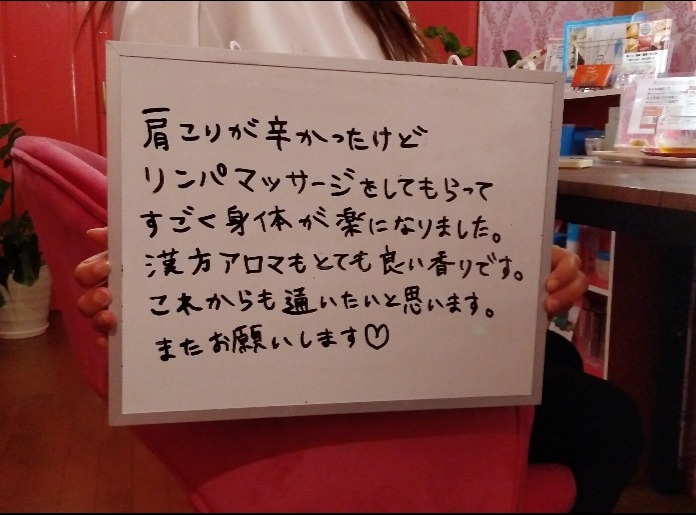 肩こりが辛かったけど
リンパマッサージをしてもらって
すごく身体が楽になりました。
漢方アロマもとても良い香りです。
これからも通いたいと思います。
またお願いします♡